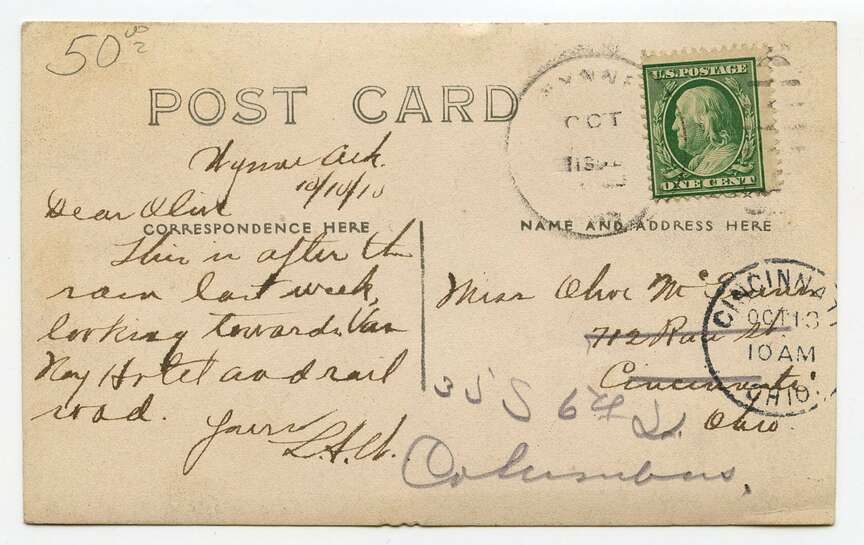 50
POST CARD
WYNNE
OCT
U.S. POSTAGE
ONE CENT
Wynne Ark.
10/10/10
Dear Olive
CORRESPONDENCE HERE
NAME AND ADDRESS HERE
This is after the
rain last week,
looking towards Van
Noy Hotel and rail
road.
Yours
Miss Olive
712 Race St.
Cincinnati
Ohio.
CINCINNATI
OCT 13
10 AM
OHIO
35 S 6th St.
Columbus,